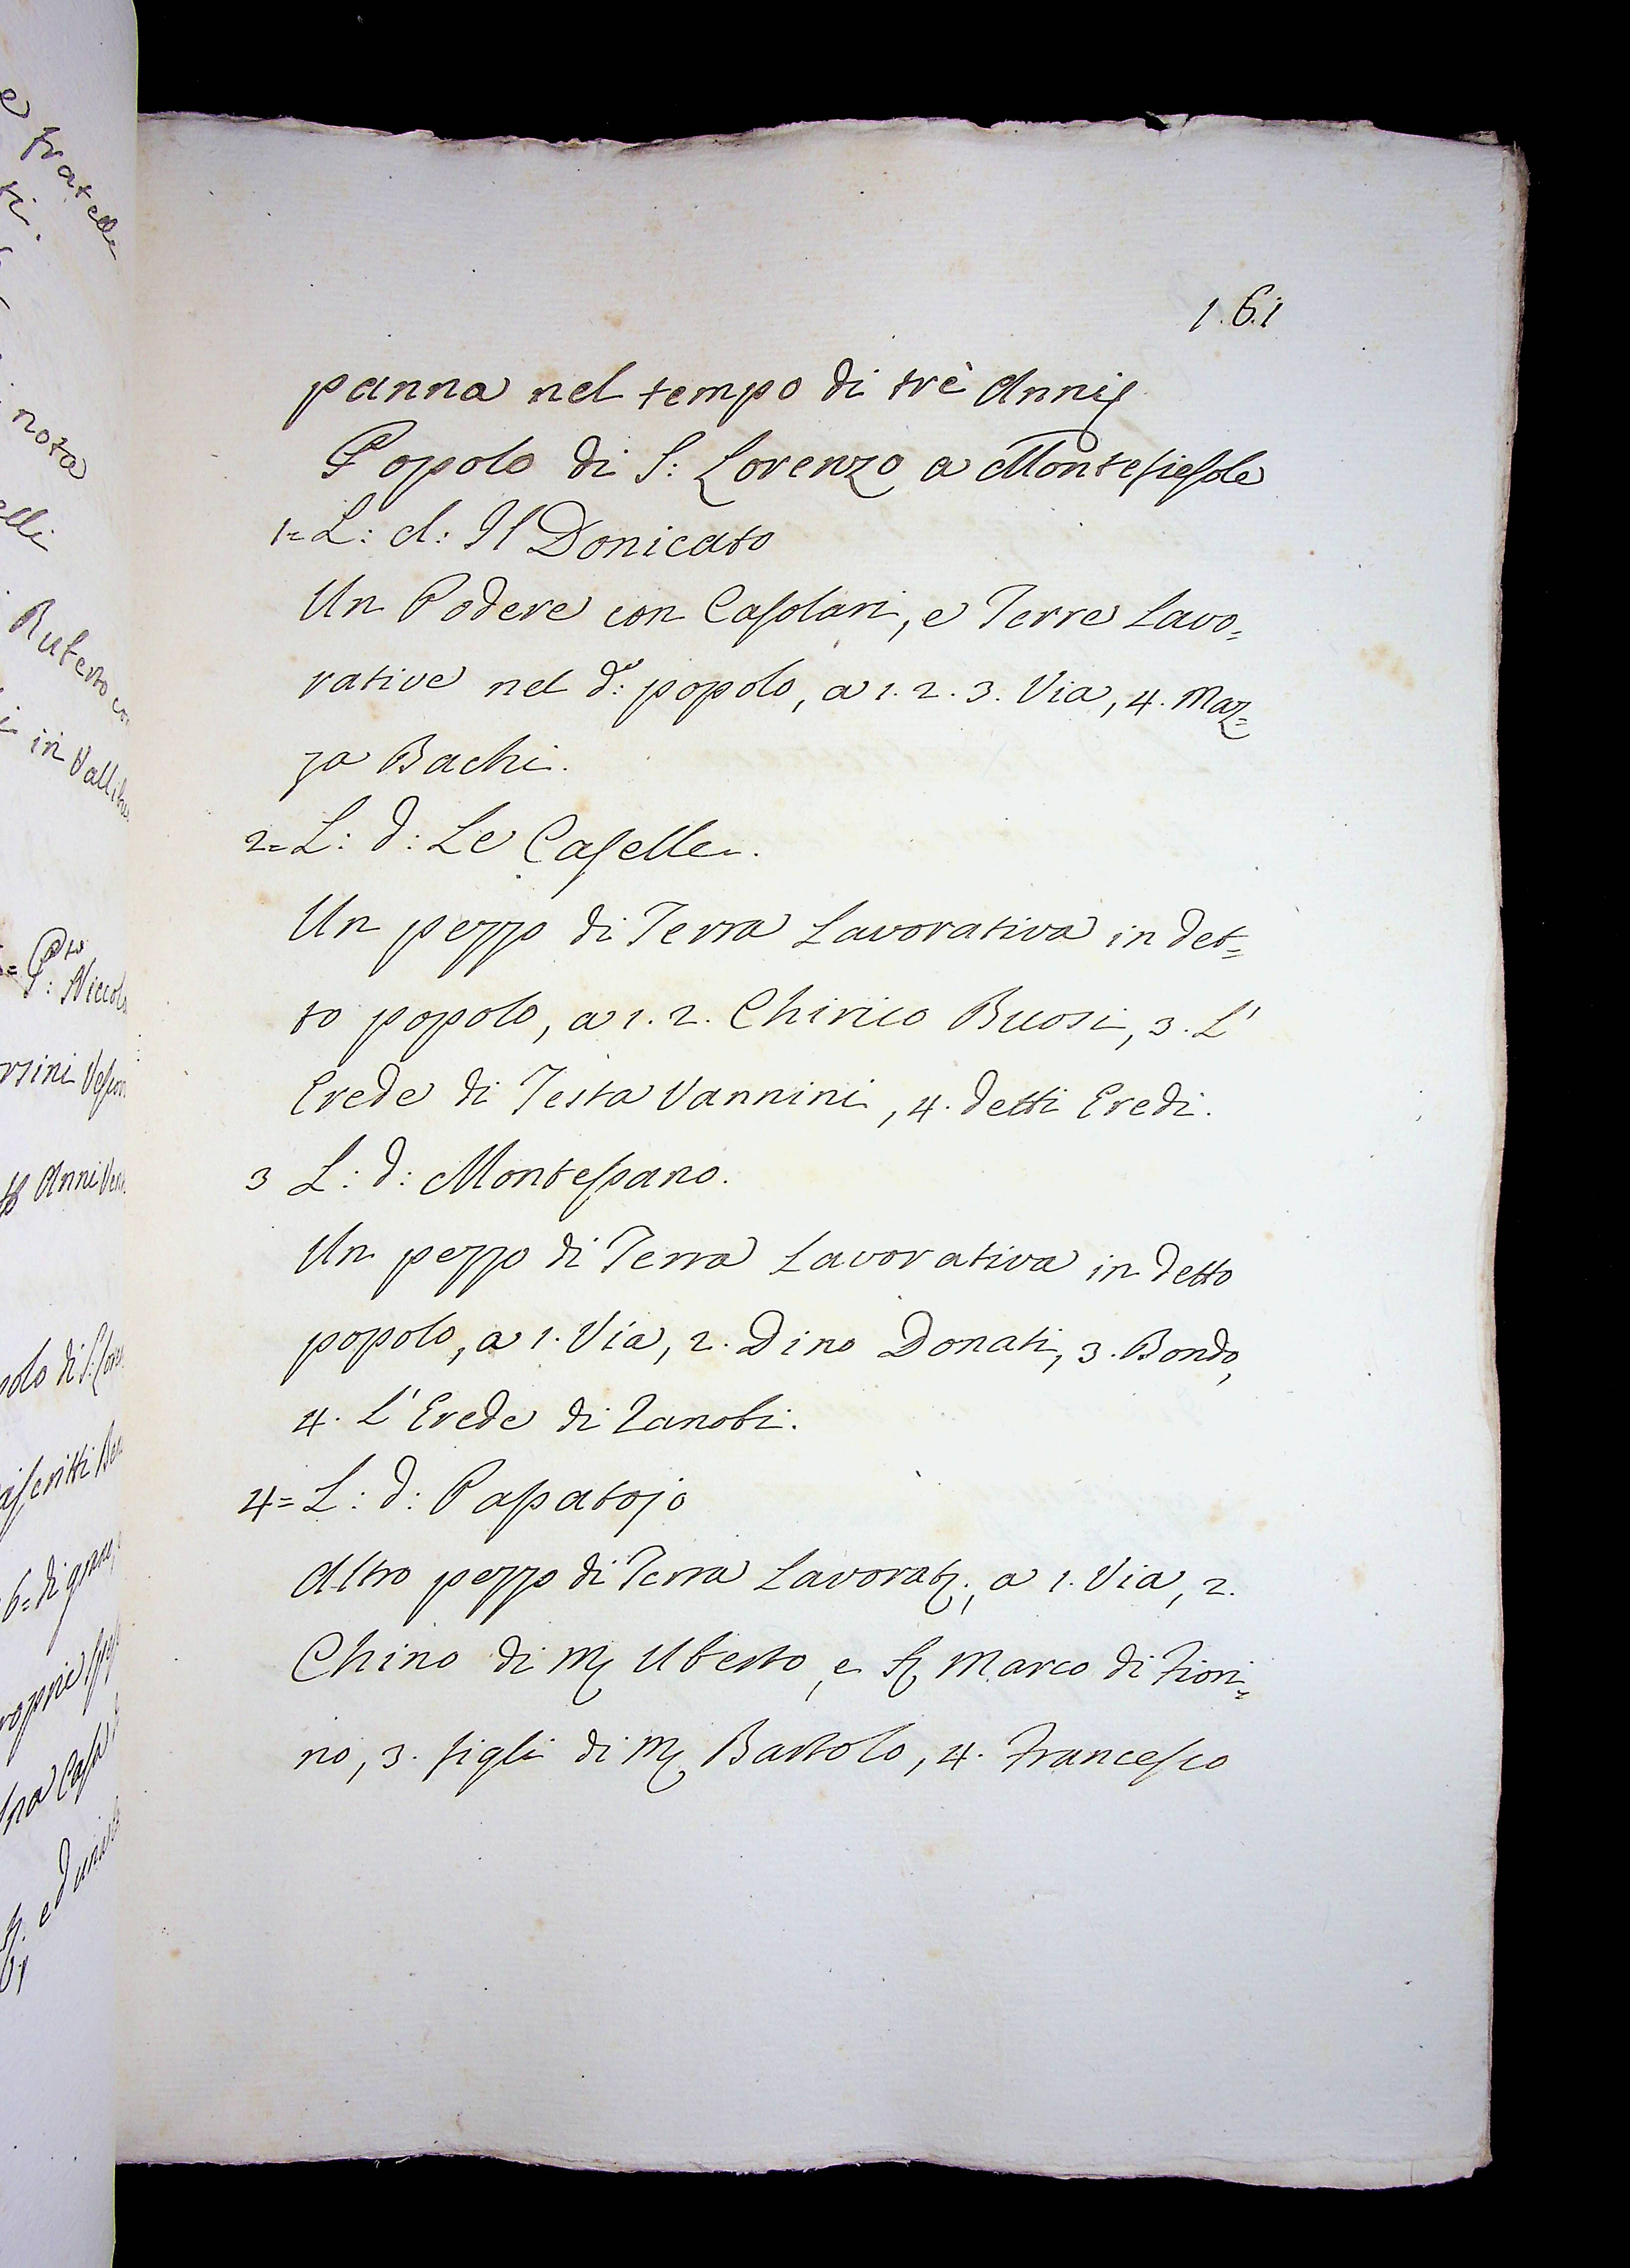 1.6.1
panna nel tempo di trè Anni
Popolo di S: Lorenzo a Montefiesole
1= L: d: Il Donicato
Un Podere con Casolari, e Terre Lavo=
rative nel d:o popolo, a 1. 2. 3. Via, 4. Maz=
za Bachi.
2= L: d: Le Caselle.
Un pezzo di Terra Lavorativa in det=
to popolo, a 1. 2. Chirico Buosi, 3. L'
Erede di Testa Vannini, 4. detti Eredi.
3 L: d: Montessano.
Un pezzo di Terra Lavorativa in detto
popolo, a 1. Via, 2. Dino Donati, 3. Bondo,
4. L'Erede di Zanobi.
4= L: d: Papatojo
Altro pezzo di Terra Lavorat; a 1. Via, 2.
Chino di M Uberto, e Marco di Fiori=
no, 3. figli di M Bartolo, 4. Francesco